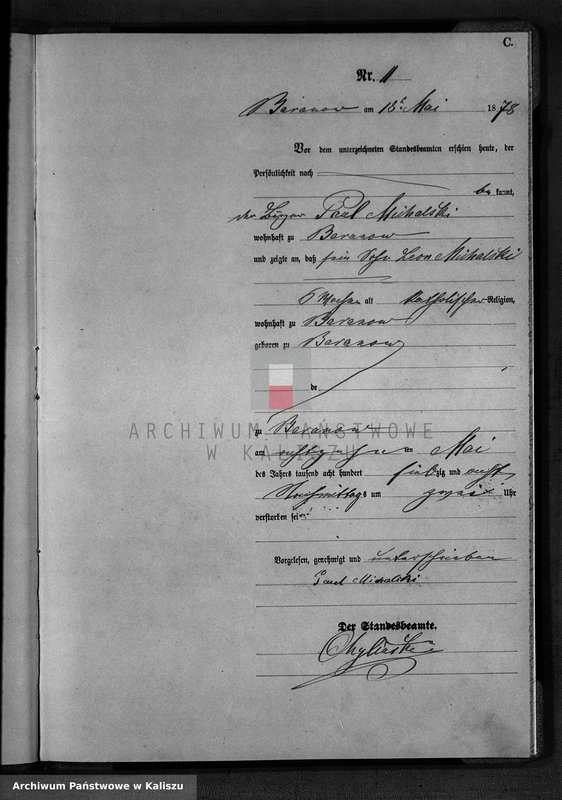 C.
Nr. 11
Baranow am 18t Mai 1878
Vor dem unterzeichneten Standesbeamten erschien heute, der
Persönlichkeit nach
bekannt,
der Bürger Paul Michalski
wohnhaft zu Baranow
und zeigte an, daß sein Sohn Leon Michalski
6 Wochen alt katholischer Religion,
wohnhaft zu Baranow
geboren zu Baranow
be
zu Baranow
ARCHIWUM PAŃSTWOWE
W KALISZU
am achtzehn en Mai
des Jahrs tausend acht hundert siebzig und acht
Nachmittags um zwei Uhr
verstorben sei
Vorgelesen, genehmigt und unterschrieben
Paul Michalski
Der Standesbeamte.
Archiwum Państwowe w Kaliszu
Archiwum Państwowe w Kaliszu